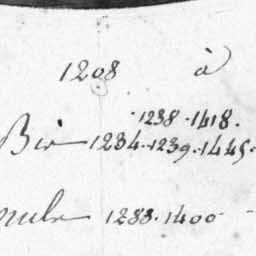 1208 à
1238.1418.
Bir 1234.1239.1445.
1283.1400